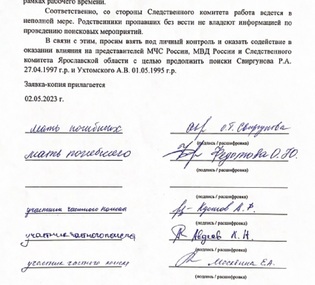 рамках рабочего времени.
Соответственно, со стороны Следственного комитета работа ведется в
неполной мере. Родственники пропавших без вести не владеют информацией по
проведению поисковых мероприятий.
В связи с этим, просим взять под личный контроль и оказать содействие в
оказании влияния на представителей МЧС России, МВД России и Следственного
комитета Ярославской области с целью продолжить поиски Свиргунова Р.А.
27.04.1997 г.р. и Ухтомского А.В. 01.05.1995 г.р.
Заявка-копия прилагается
02.05.2023 г.
мать погибших О.Т. Свиргунова
(подпись / расшифровка)
мать погибшего Федотова О.Ю.
(подпись / расшифровка)
(подпись / расшифровка)
участник частного поиска А.Р.
(подпись / расшифровка)
участник частного поиска Авдеев К.Н.
(подпись / расшифровка)
участник частного поиска Мосевнина Е.А.
(подпись / расшифровка)